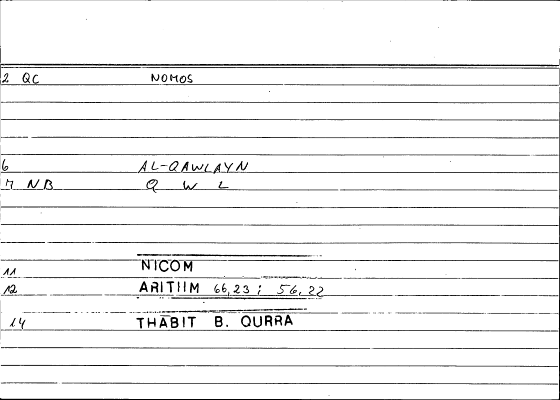 2 QC NOMOS
6 AL-QAWLAYN
7 NB Q W L
11 NICOM
12 ARITIIM 66,23 ; 56,22
14 THĀBIT B. QURRA